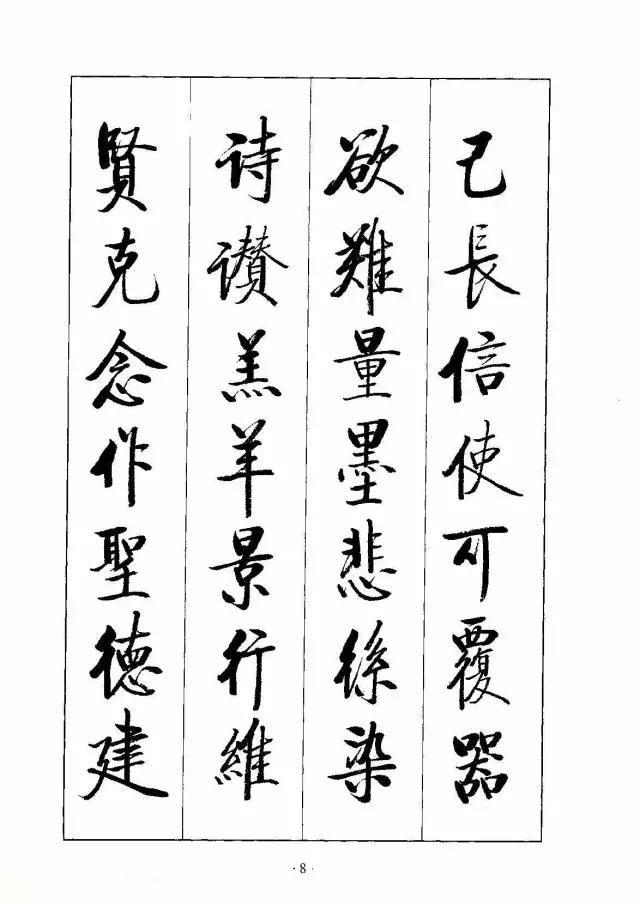 己長信使可覆器
欲難量墨悲絲染
诗讃羔羊景行維
賢克念作聖德建
·8·